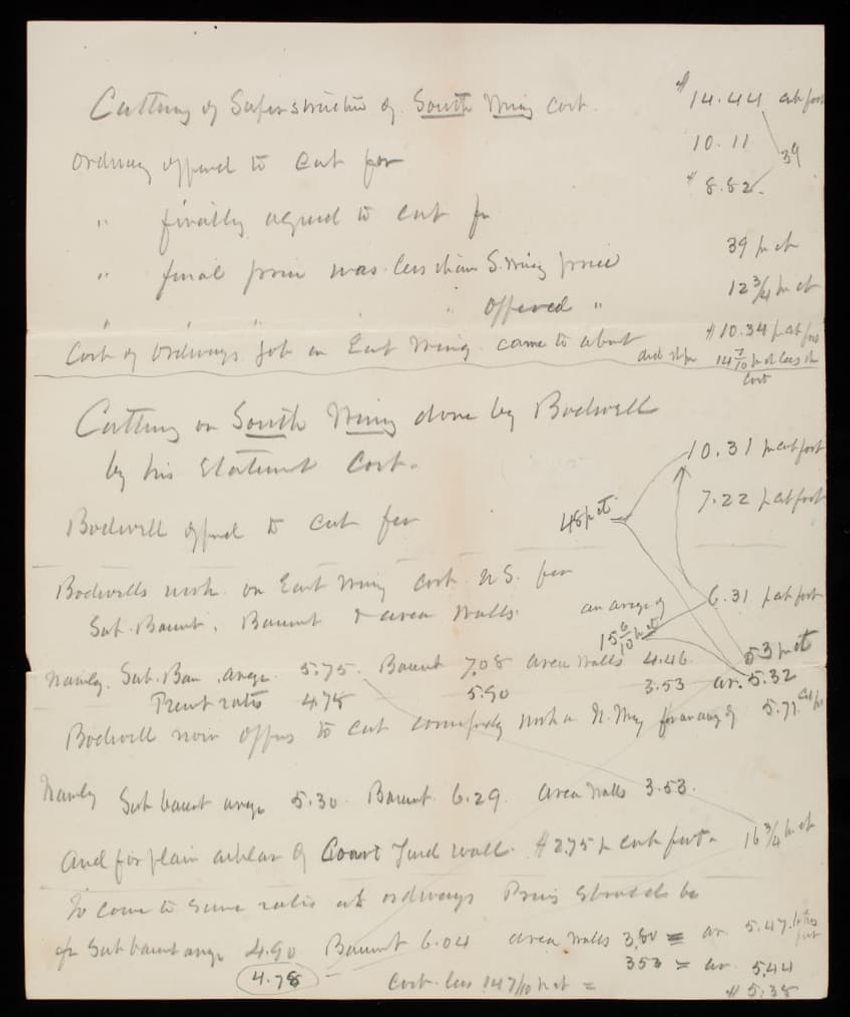 Cutting of Superstructure of South Wing cost. $14.44 cub foot
Ordway offered to cut for 10.11
" finally agreed to cut for $8.82. 39
" final price was less than S. Wing price 39 pr ct
" " " " Offered " 12 3/4 pr ct
Cost of Ordways Job on East Wing came to about $10.34 pr cub foot
14 7/10 pr ct less
cost
Cutting on South Wing done by Bodwell
by his Statement Cost. 10.31 pr cub foot
Bodwell offered to cut for 48 pr ct 7.22 p cub foot
Bodwells work on East Wing cost U.S. for
Sub. Basmt, Basmt & area walls. an average of 6.31 p cub foot
15 6/10 pr ct
53 pr ct
Namely. Sub. Bas. avrge 5.75. Basmt 7.08 area walls 4.46
Present ratio 4.78 5.90 3.53 av. 5.32
Bodwell now offers to cut work on N. Wing for an avg of 5.71
Namely Sub basmt avrge 5.30 Basmt 6.29. area walls 3.53.
And for plain ashlar of Court Yard wall. $2.75 p cub foot. 16 3/4 pr ct
To come to same ratio as ordways Prices should be
for Sub basmt avrge 4.90 Basmt 6.04 area walls 3.80 = av. 5.47
4.78 353 = av 5.44
Cost less 14 7/10 pr ct = $5.38